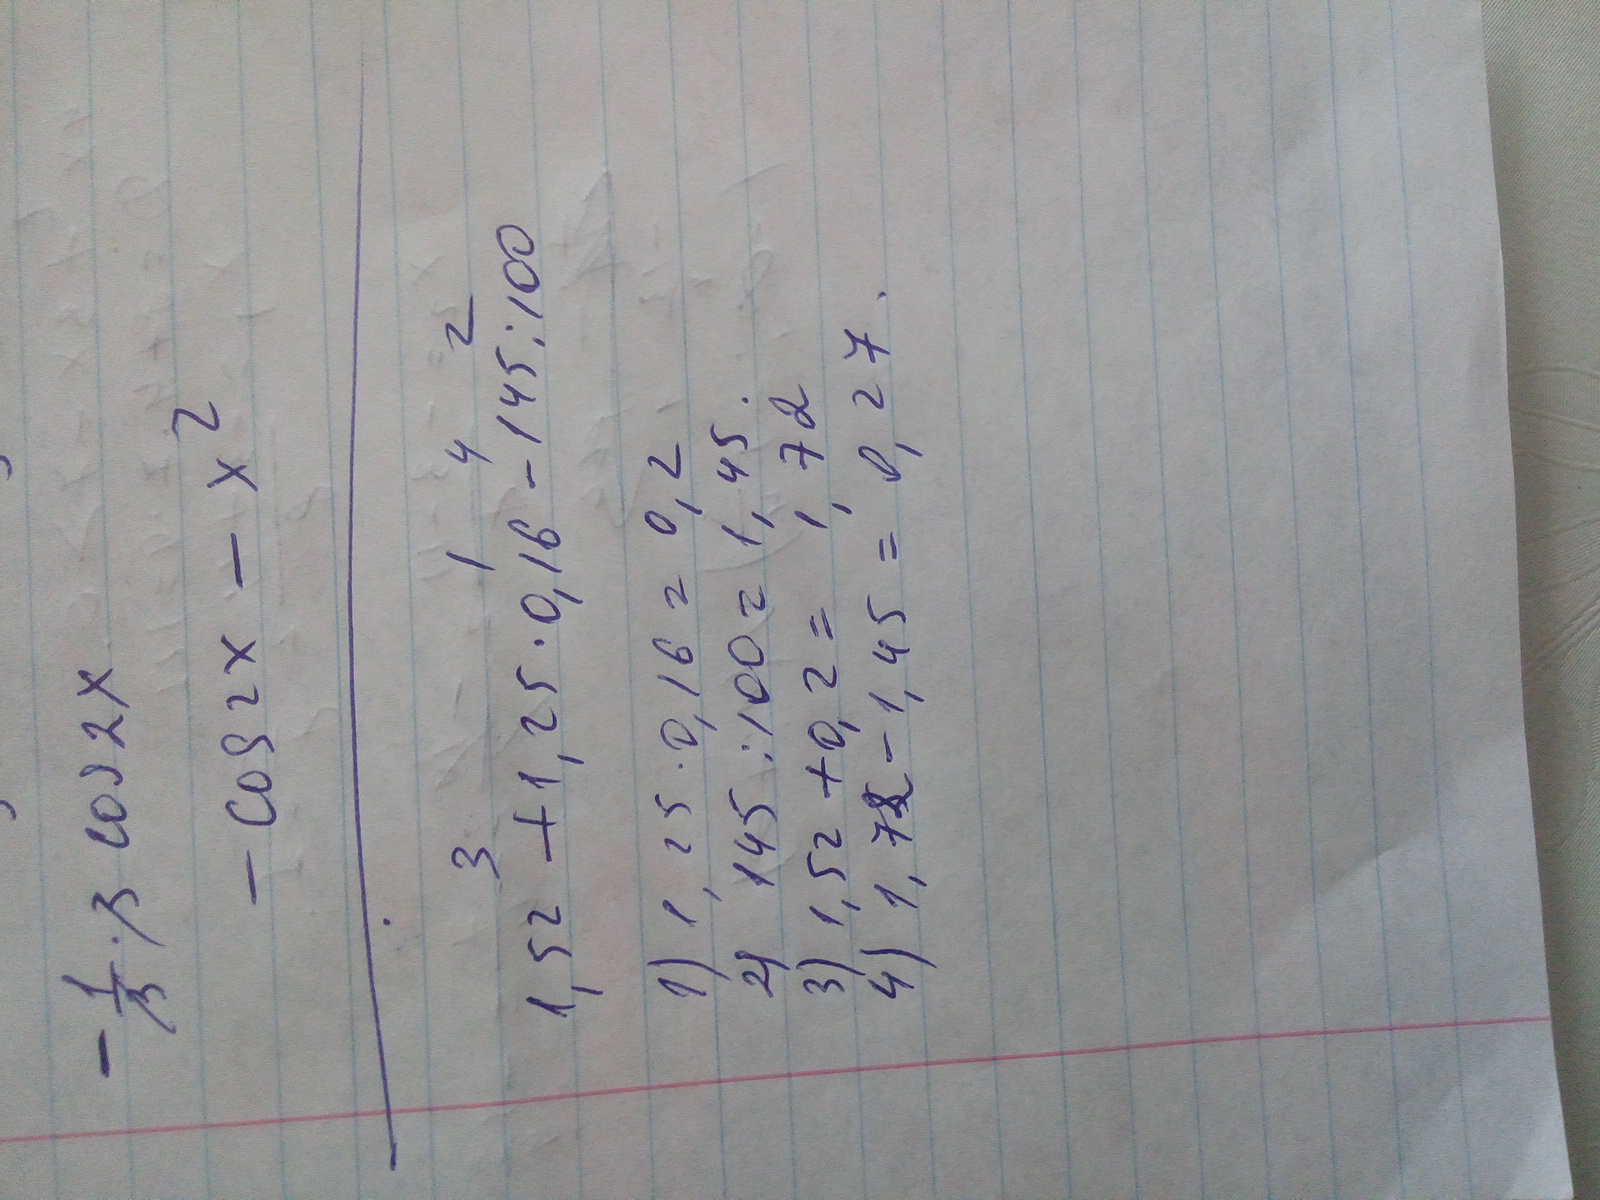 - 1/3 · 3 cos 2x
- cos 2x - x²
3 1 4 2
1,52 + 1,25 · 0,16 - 145 : 100
1) 1,25 · 0,16 = 0,2
2) 145 : 100 = 1,45.
3) 1,52 + 0,2 = 1,72
4) 1,72 - 1,45 = 0,27.